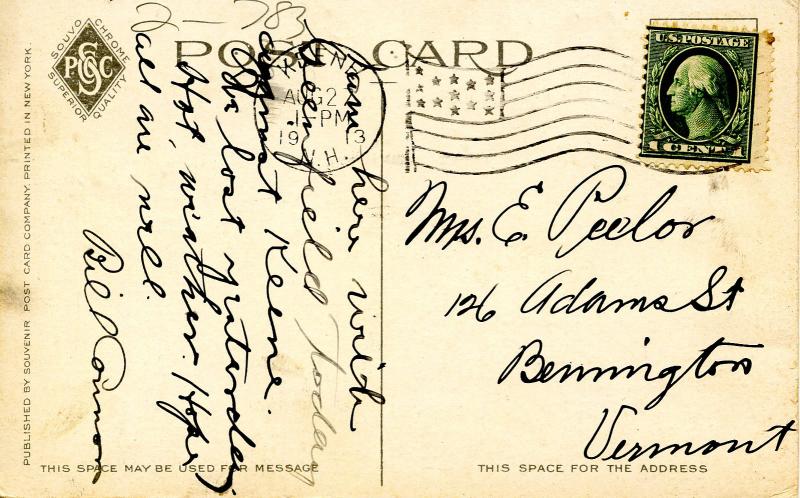 POST CARD
SOUVO CHROME
SPCC
SUPERIOR QUALITY
PUBLISHED BY SOUVENIR POST CARD COMPANY. PRINTED IN NEW YORK.
KEENE
AUG 2
1-PM
1913
N.H.
U.S. POSTAGE
1 CENT 1
am here with
Greenfield today
against Keene.
We lost yesterday.
Hot, weather. Hope
all are well.
Bill Connors
Mrs. E. Peelor
126 Adams St
Bennington
Vermont
THIS SPACE MAY BE USED FOR MESSAGE
THIS SPACE FOR THE ADDRESS